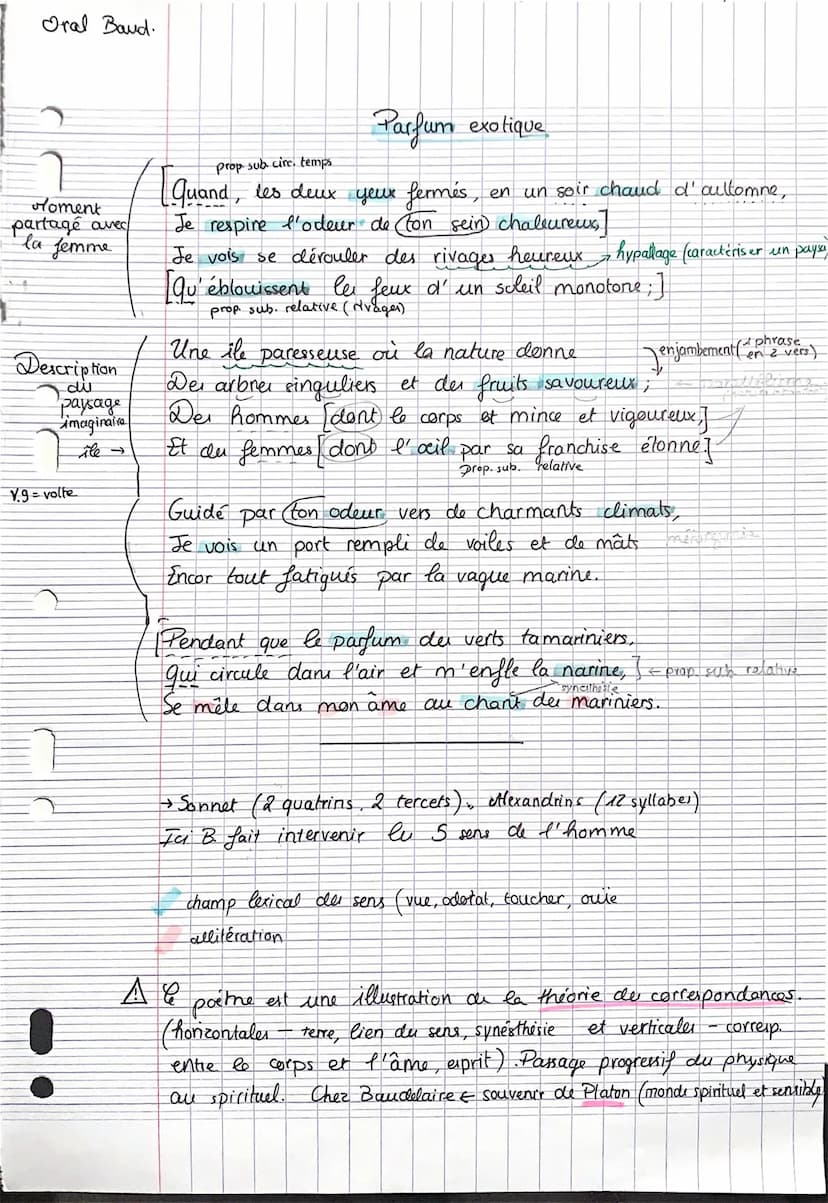 Oral Baud.
Parfum exotique
prop. sub. circ. temps
[Quand, les deux yeux fermés, en un soir chaud d'automne,
Je respire l'odeur de ton sein chaleureux,]
Je vois se dérouler des rivages heureux → hypallage (caractériser un pays
[Qu'éblouissent les feux d'un soleil monotone;]
prop. sub. relative (rivages)
Moment
partagé avec
la femme
Une île paresseuse où la nature donne
enjambement (1 phrase
en 2 vers)
Des arbres singuliers et des fruits savoureux;
Des hommes [dont le corps est mince et vigoureux,]
Et des femmes [dont l'œil par sa franchise étonne.]
prop. sub. relative
Description
du
paysage
imaginaire
île →
v.9 = volte
Guidé par ton odeur vers de charmants climats,
Je vois un port rempli de voiles et de mâts
Encor tout fatigués par la vague marine.
[Pendant que le parfum des verts tamariniers,
Qui circule dans l'air et m'enfle la narine,] ← prop. sub. relative
synesthésie
Se mêle dans mon âme au chant des mariniers.
→ Sonnet (2 quatrins, 2 tercets), Alexandrins (12 syllabes)
Ici B. fait intervenir les 5 sens de l'homme
champ lexical des sens (vue, odotat, toucher, ouïe
allitération
⚠ Ce poème est une illustration de la théorie des correspondances.
(horizontales — terre, lien du sens, synésthésie et verticales - corresp.
entre le corps et l'âme, esprit). Passage progressif du physique
au spirituel. Chez Baudelaire ← souvenir de Platon (monde spirituel et sensible)